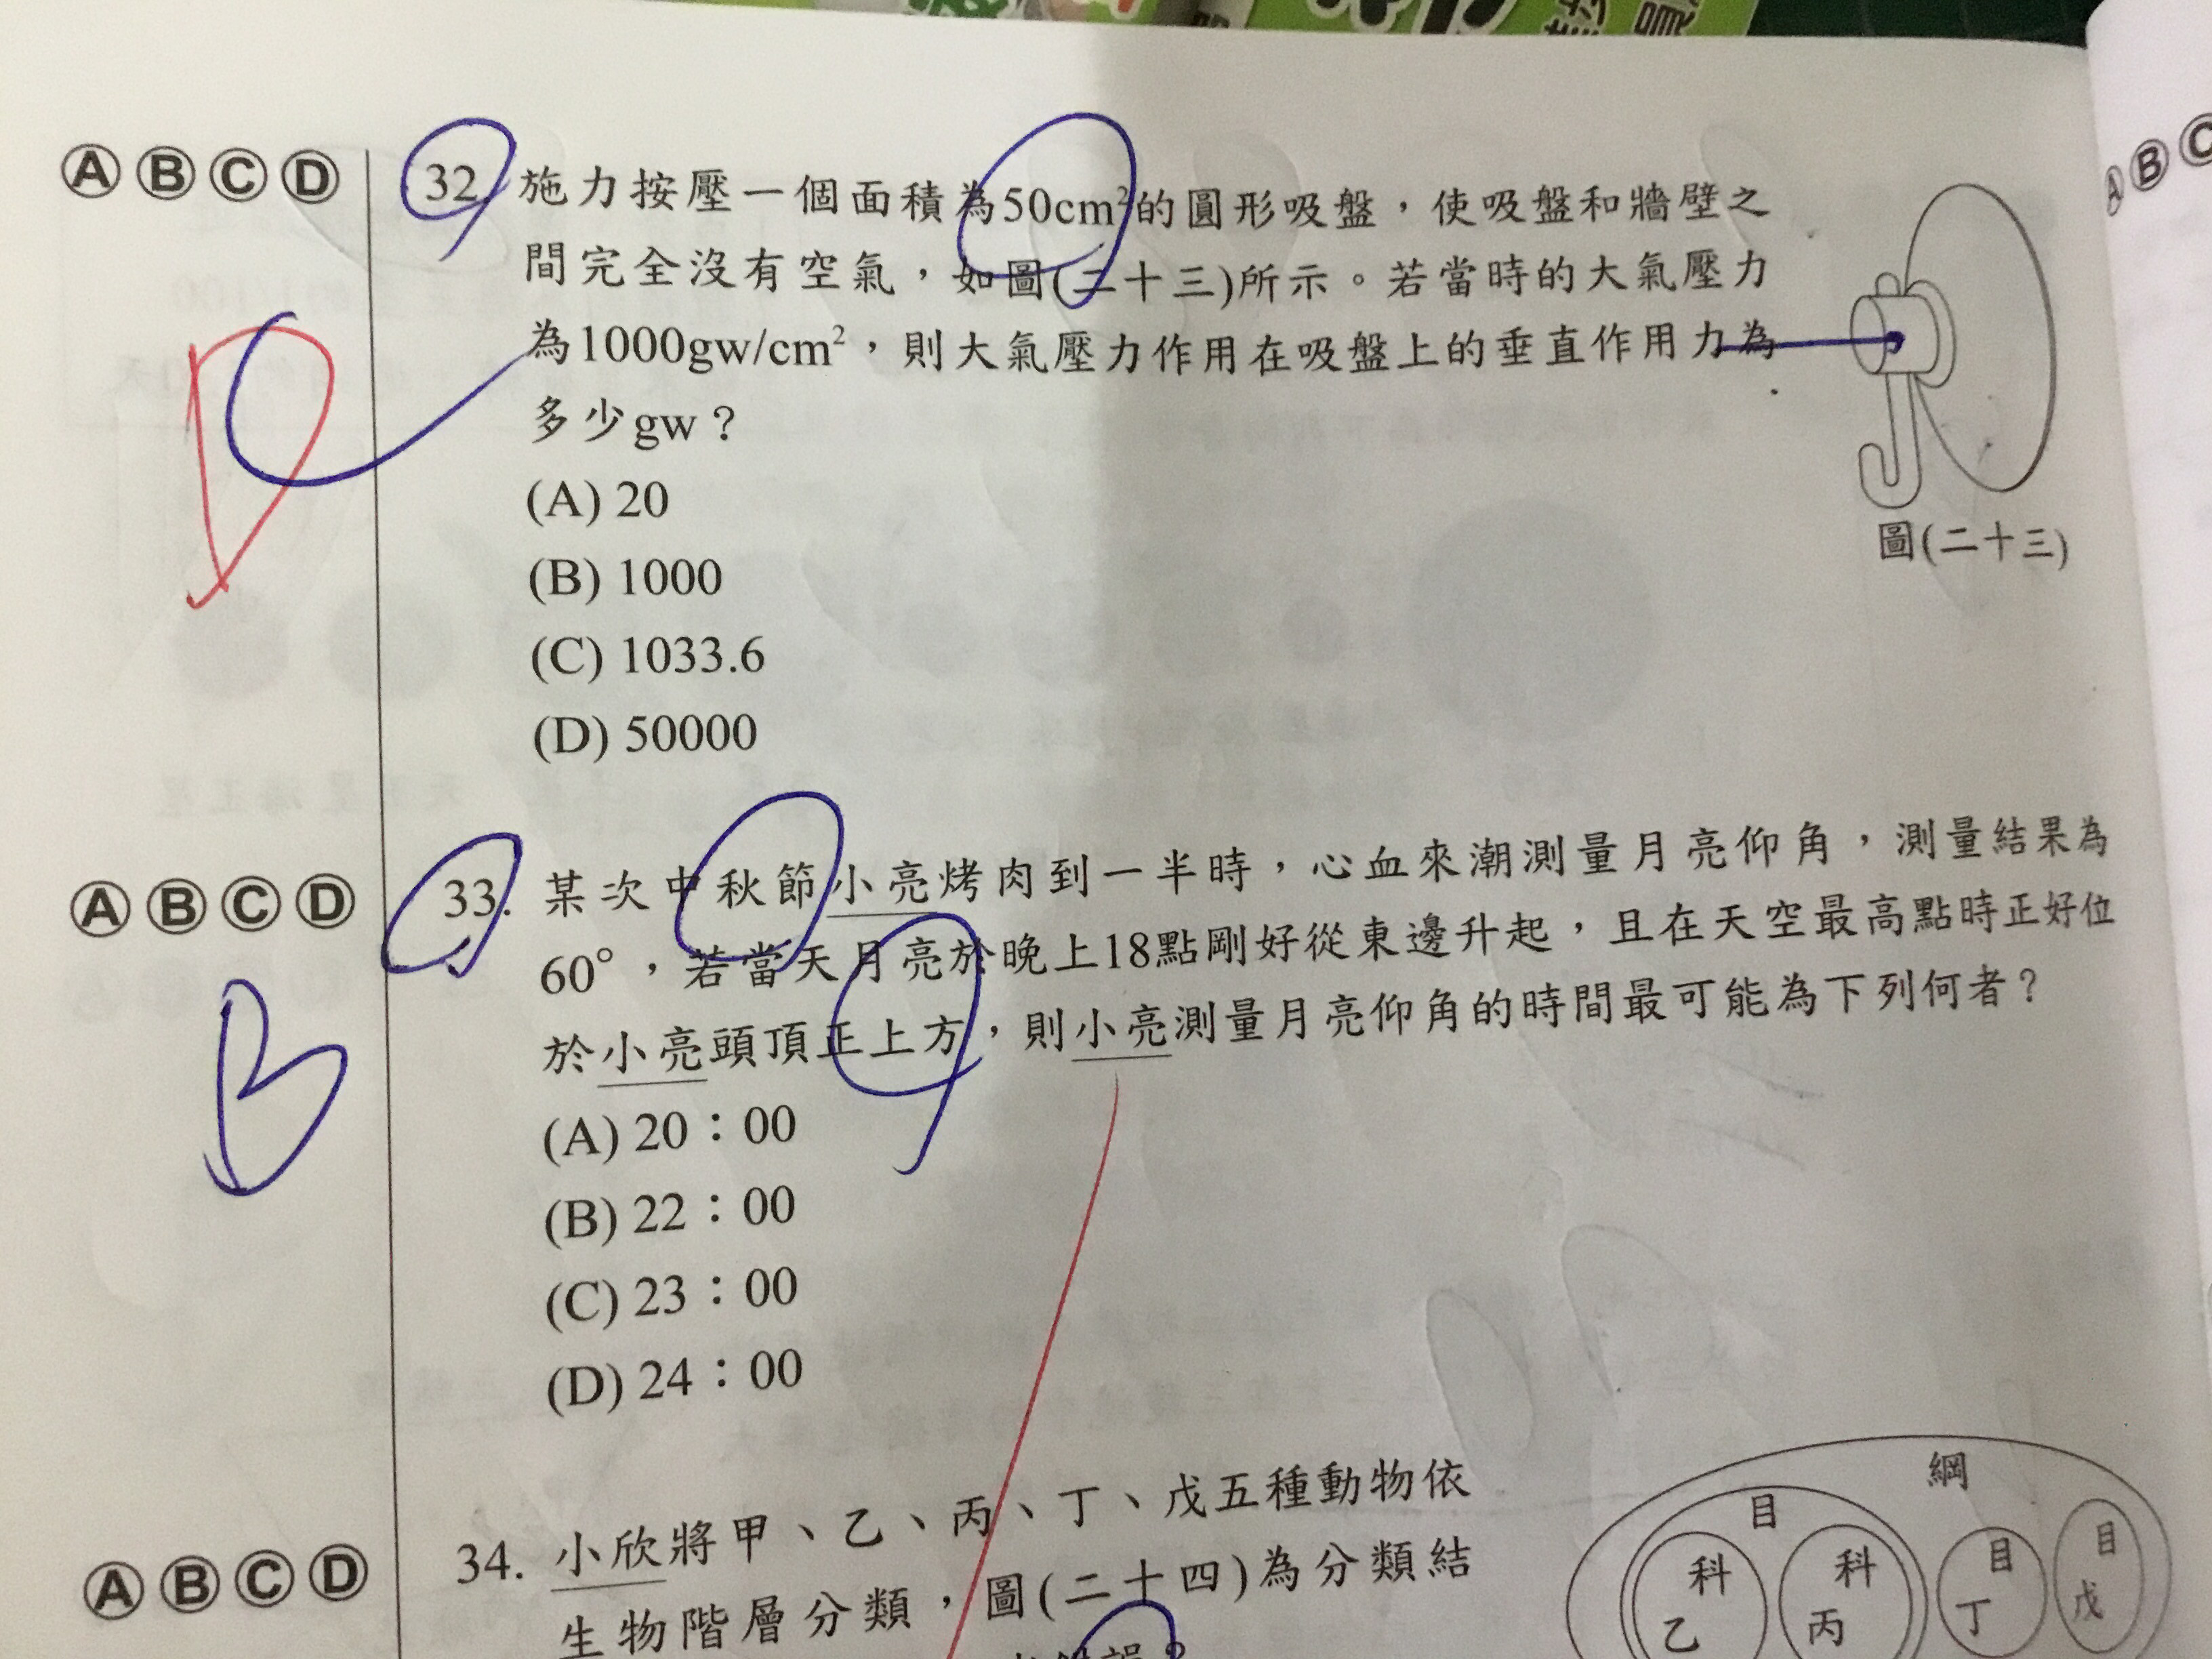 Ⓐ Ⓑ Ⓒ Ⓓ
32. 施力按壓一個面積為50cm²的圓形吸盤，使吸盤和牆壁之
間完全沒有空氣，如圖(二十三)所示。若當時的大氣壓力
為1000gw/cm²，則大氣壓力作用在吸盤上的垂直作用力為
多少gw？
(A) 20
(B) 1000
(C) 1033.6
(D) 50000
圖(二十三)
D
Ⓐ Ⓑ Ⓒ Ⓓ
33. 某次中秋節小亮烤肉到一半時，心血來潮測量月亮仰角，測量結果為
60°，若當天月亮於晚上18點剛好從東邊升起，且在天空最高點時正好位
於小亮頭頂正上方，則小亮測量月亮仰角的時間最可能為下列何者？
(A) 20：00
(B) 22：00
(C) 23：00
(D) 24：00
B
Ⓐ Ⓑ Ⓒ Ⓓ
34. 小欣將甲、乙、丙、丁、戊五種動物依
生物階層分類，圖(二十四)為分類結
綱
目
科
乙
科
丙
目
丁
目
戊
Ⓐ Ⓑ Ⓒ